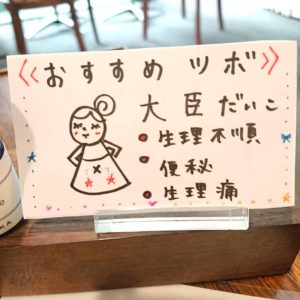 《おすすめ ツボ》
大臣だいこ
生理不順
便秘
生理痛
KA